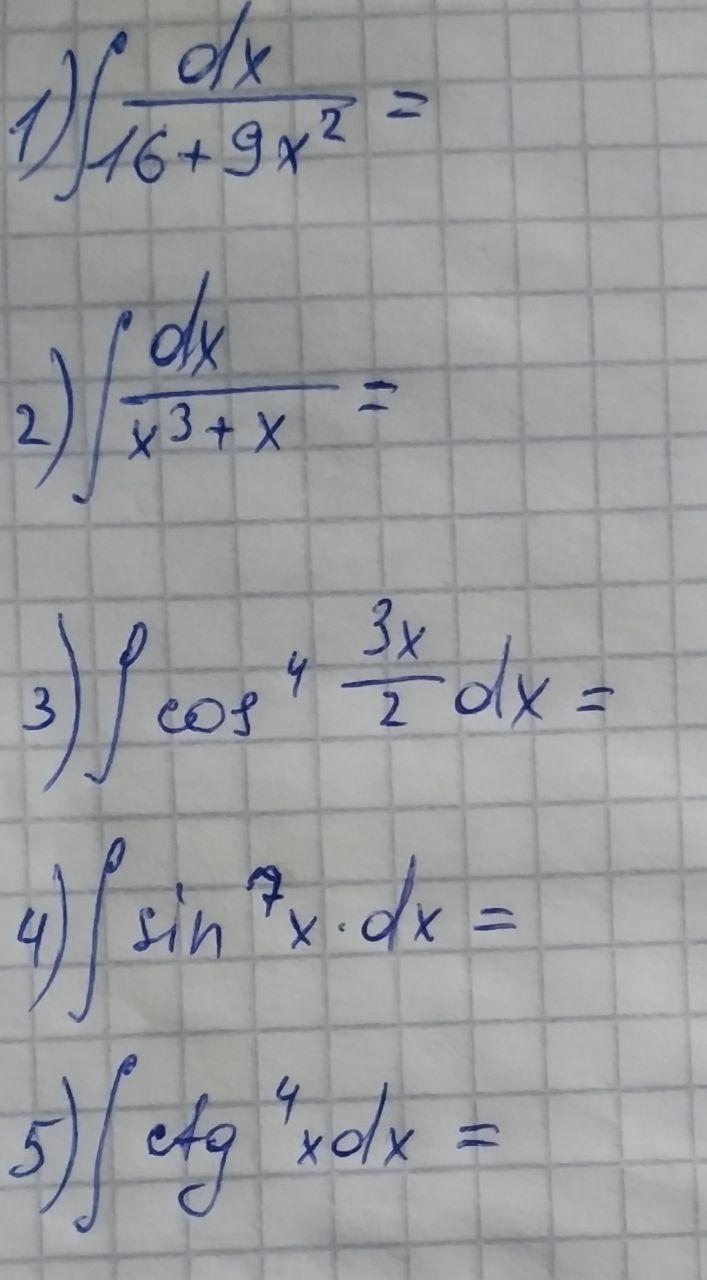 1) ∫ dx / (16 + 9x²) =
2) ∫ dx / (x³ + x) =
3) ∫ cos⁴ 3x/2 dx =
4) ∫ sin⁷x · dx =
5) ∫ ctg⁴x dx =